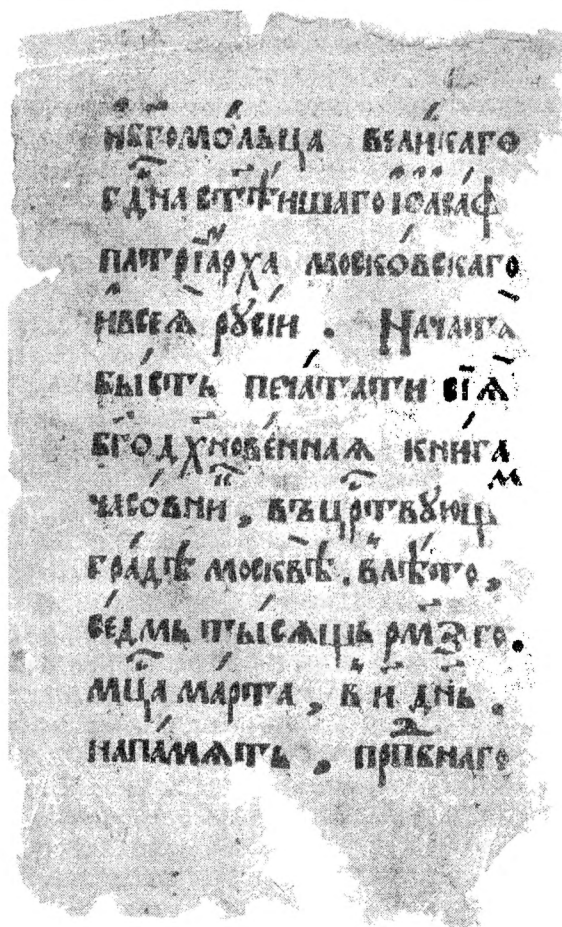 и҆бг҃омо́льца вели́каго
гд҇на ст҃ѣ́ишаго і҆ѡаса́ф
патрїа́рха моско́вскаго
и҆всеѧ̀ рꙋсі́и . Начатѧ̀
бы́сть печа́тати сїѧ̀
бг҃одх҃нове́ннаѧ кни́га
часо́вни , въцр҇твꙋющⷨ
гра́дѣ москвѣ̀ , влѣ́то ,
се́дмь ты́сѧщь рмз҃го .
мц҇а ма́рта , в и҃ дн҃ь .
напа́мѧть , прпⷣбнаго